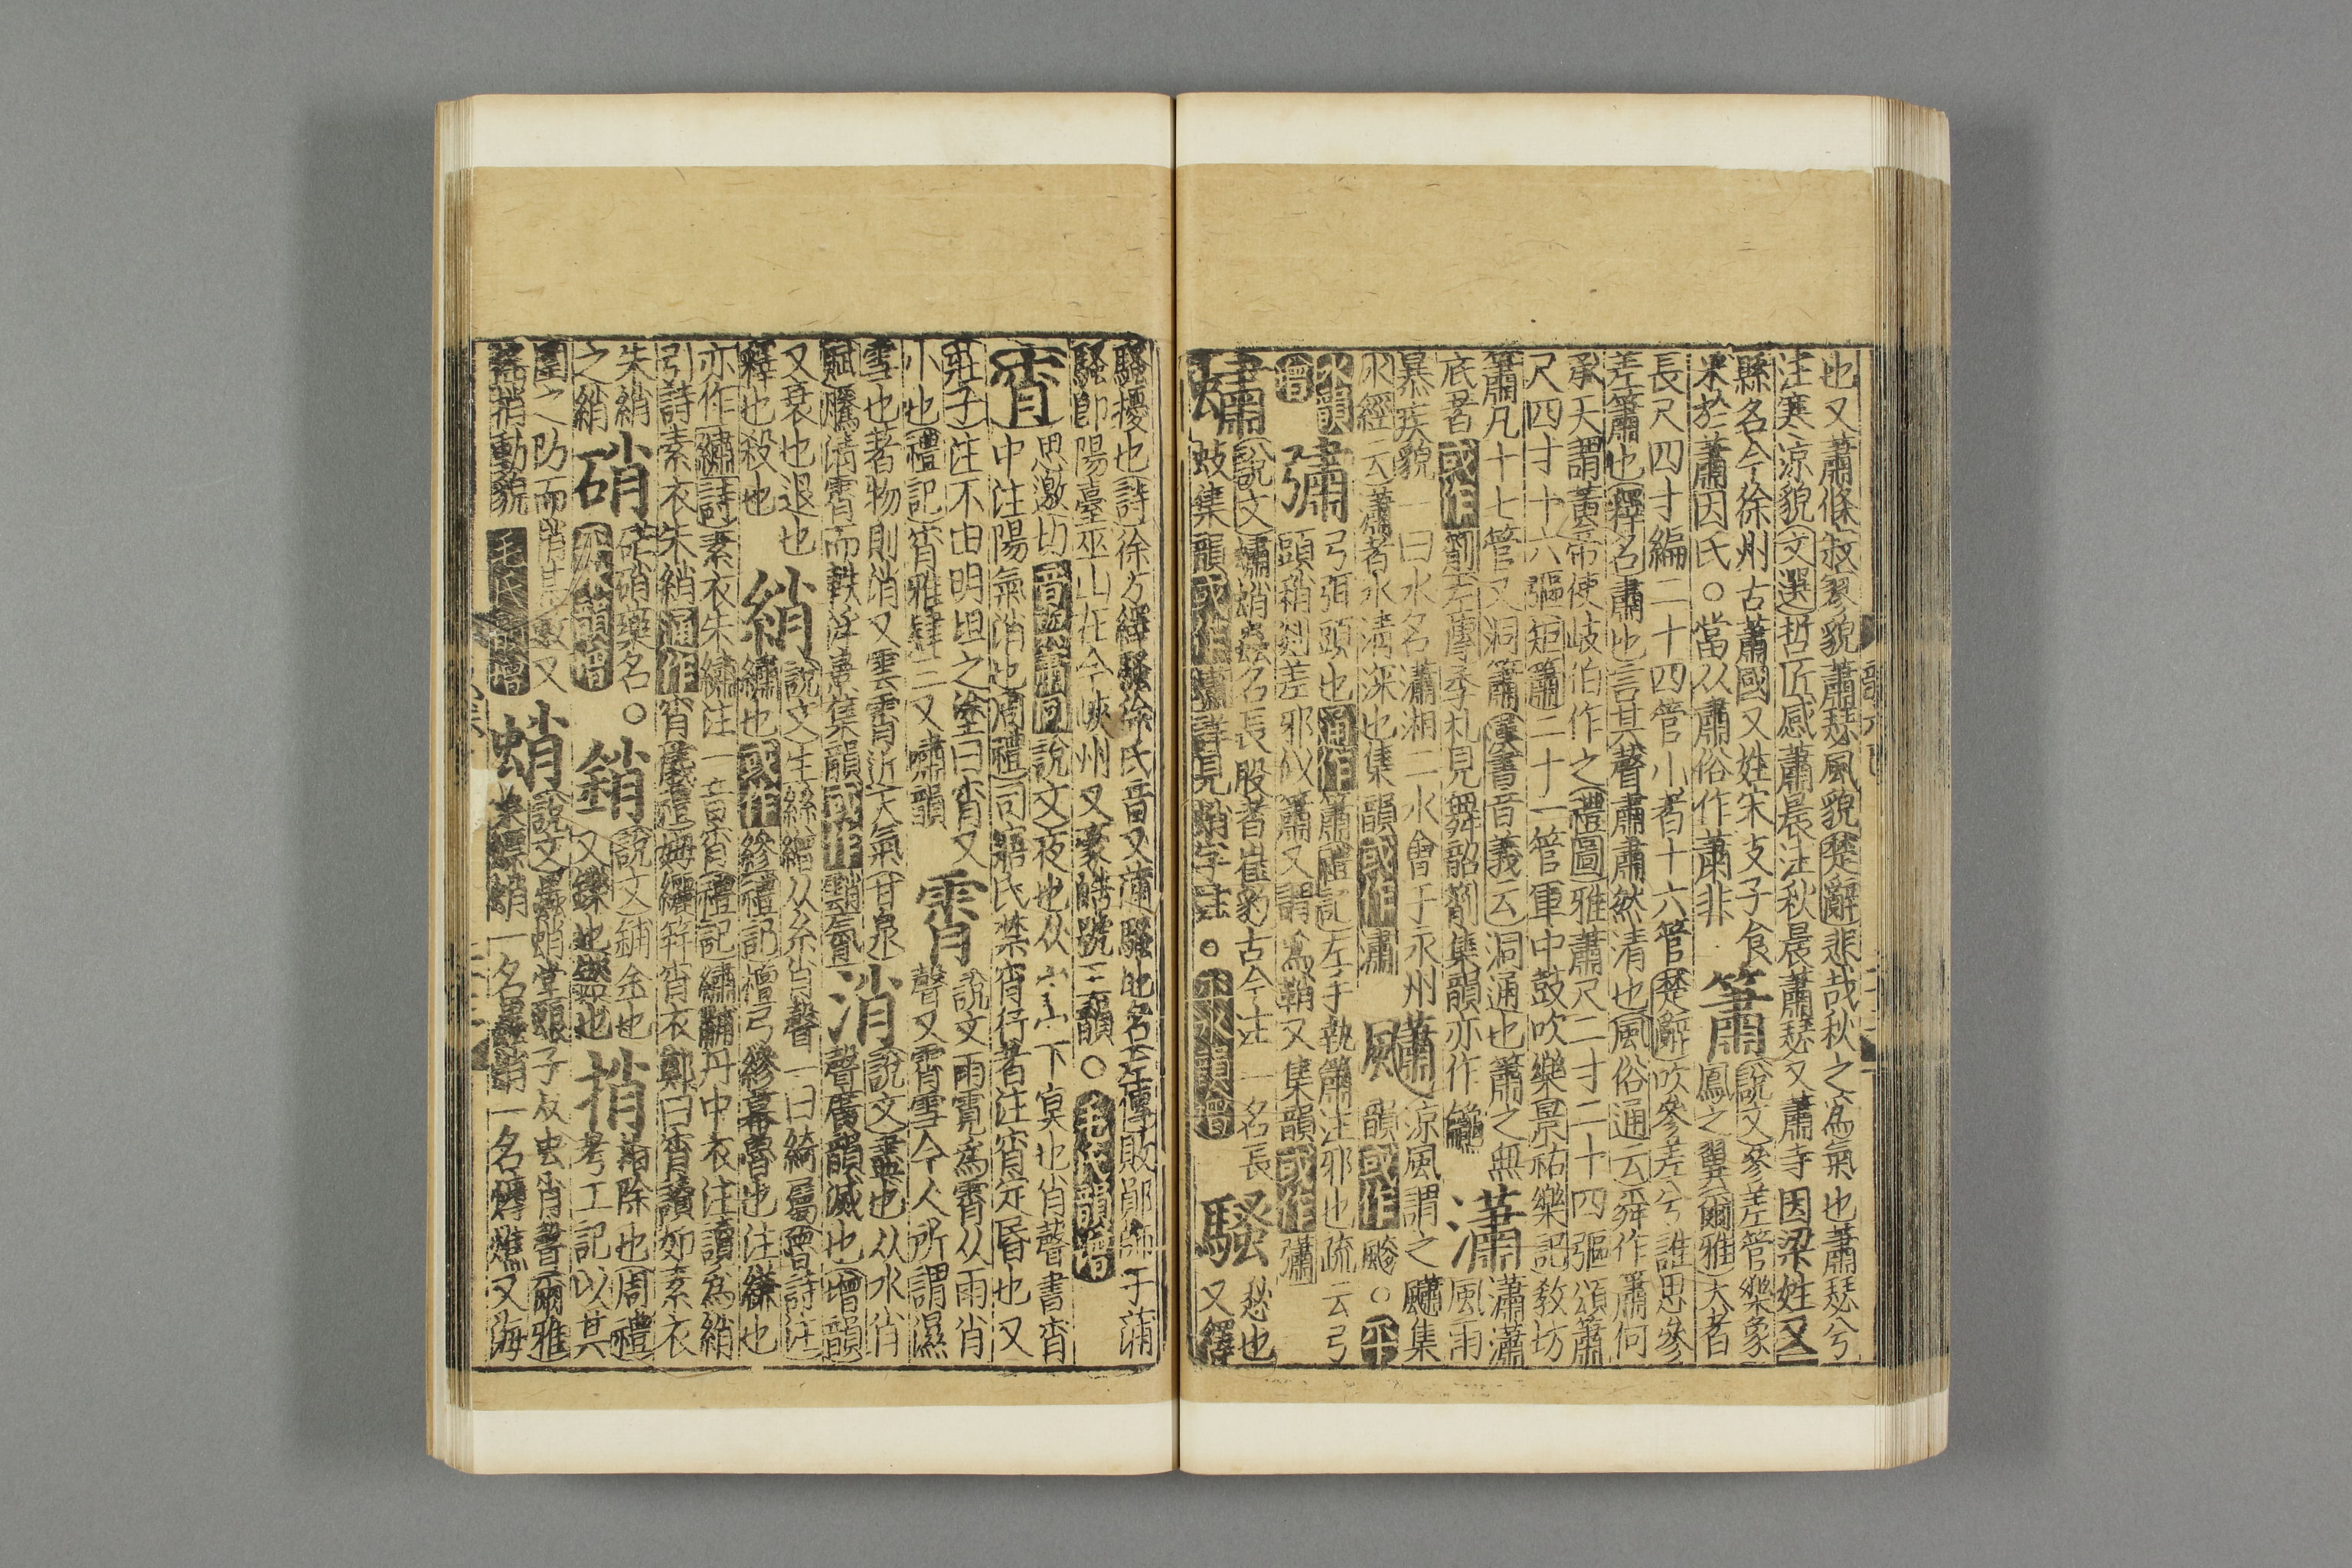 也又蕭條寂寥貌蕭瑟風貌楚辭悲哉秋之為氣也蕭瑟兮
注寒涼貌文選哲匠感蕭晨注秋晨蕭瑟又蕭寺因梁姓又
縣名今徐州古蕭國又姓宋支子食
釆於蕭因氏○當从肅俗作萧非
簫
說文參差管樂象
鳳之翼爾雅大者
長尺四寸編二十四管小者十六管楚辭吹參差兮誰思參
差簫也釋名肅也言其聲肅肅然清也風俗通云舜作簫何
承天謂黃帝使岐伯作之禮圖雅蕭尺二寸二十四彄頌簫
尺四寸十六彄矩簫二十一管軍中鼓吹樂景祐樂記敎坊
簫凡十七管又洞簫漢書音義云洞通也簫之無
底者或作箾左傳季札見舞韶箾集韻亦作
瀟
瀟瀟
風雨
暴疾貌一曰水名瀟湘二水會于永州
水經云蕭者水清深也集韻或作潚
飍
涼風謂之飍集
韻或作
○平
水韻
增
彇
弓弭頭也通作簫禮記左手執簫注邪也疏云弓
頭稍剡差邪似簫又謂為鞘又集韻或作
蟰
說文蟰蛸蟲名長股者崔豹古今注一名長
蚑集韻或作蠨詳見蛸字注○平水韻增
騷
愁也
又繹
騷擾也詩徐方繹騷徐氏音又蒲騷地名左傳敗鄖師于蒲
騷卽陽臺巫山在今峽州又豪晧號三韻○毛氏韻增
宵
思邀切音與蕭同說文夜也从宀宀下冥也肖聲書宵
中注陽氣消也周禮司寤氏禁宵行者注宵定昏也又
莊子注不由明坦之塗曰宵又
小也禮記宵雅肄三又嘯韻
霄
說文雨霓為霄从雨肖
聲又霄雪今人所謂濕
雪也著物則消又雲霄近天氣甘泉
賦騰淸霄而軼浮景集韻或作
消
說文盡也从水肖
聲廣韻滅也增韻
又衰也退也
釋也殺也
綃
說文生絲繒从糸肖聲一曰綺屬曹詩注
繡也或作縿禮記檀弓縿幕魯也注縑也
亦作繡詩素衣朱繡注一音宵禮記繡黼丹中衣注讀為綃
引詩素衣朱綃通作宵儀禮姆纚笄宵衣鄭曰宵讀如素衣
朱綃
之綃
硝
硭硝藥名○
平水韻增
銷
說文鑠金也
又鑠也盡也
捎
芟除也周禮
考工記以其
圍之阞而捎其藪又
捎動貌毛氏韻增
蛸
說文蟲蛸堂蜋子从虫肖聲爾雅
蜱蛸一名又海